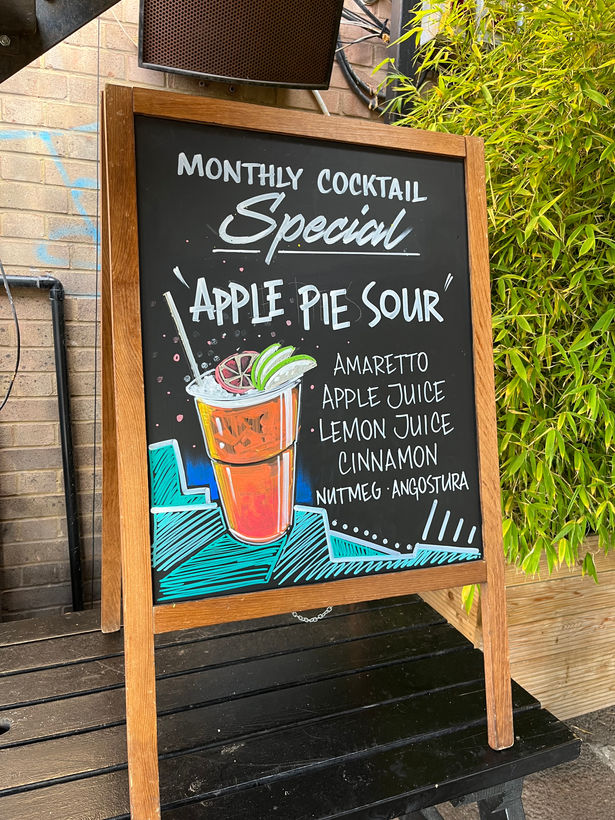 MONTHLY COCKTAIL
Special
'APPLE PIE SOUR'
AMARETTO
APPLE JUICE
LEMON JUICE
CINNAMON
NUTMEG · ANGOSTURA